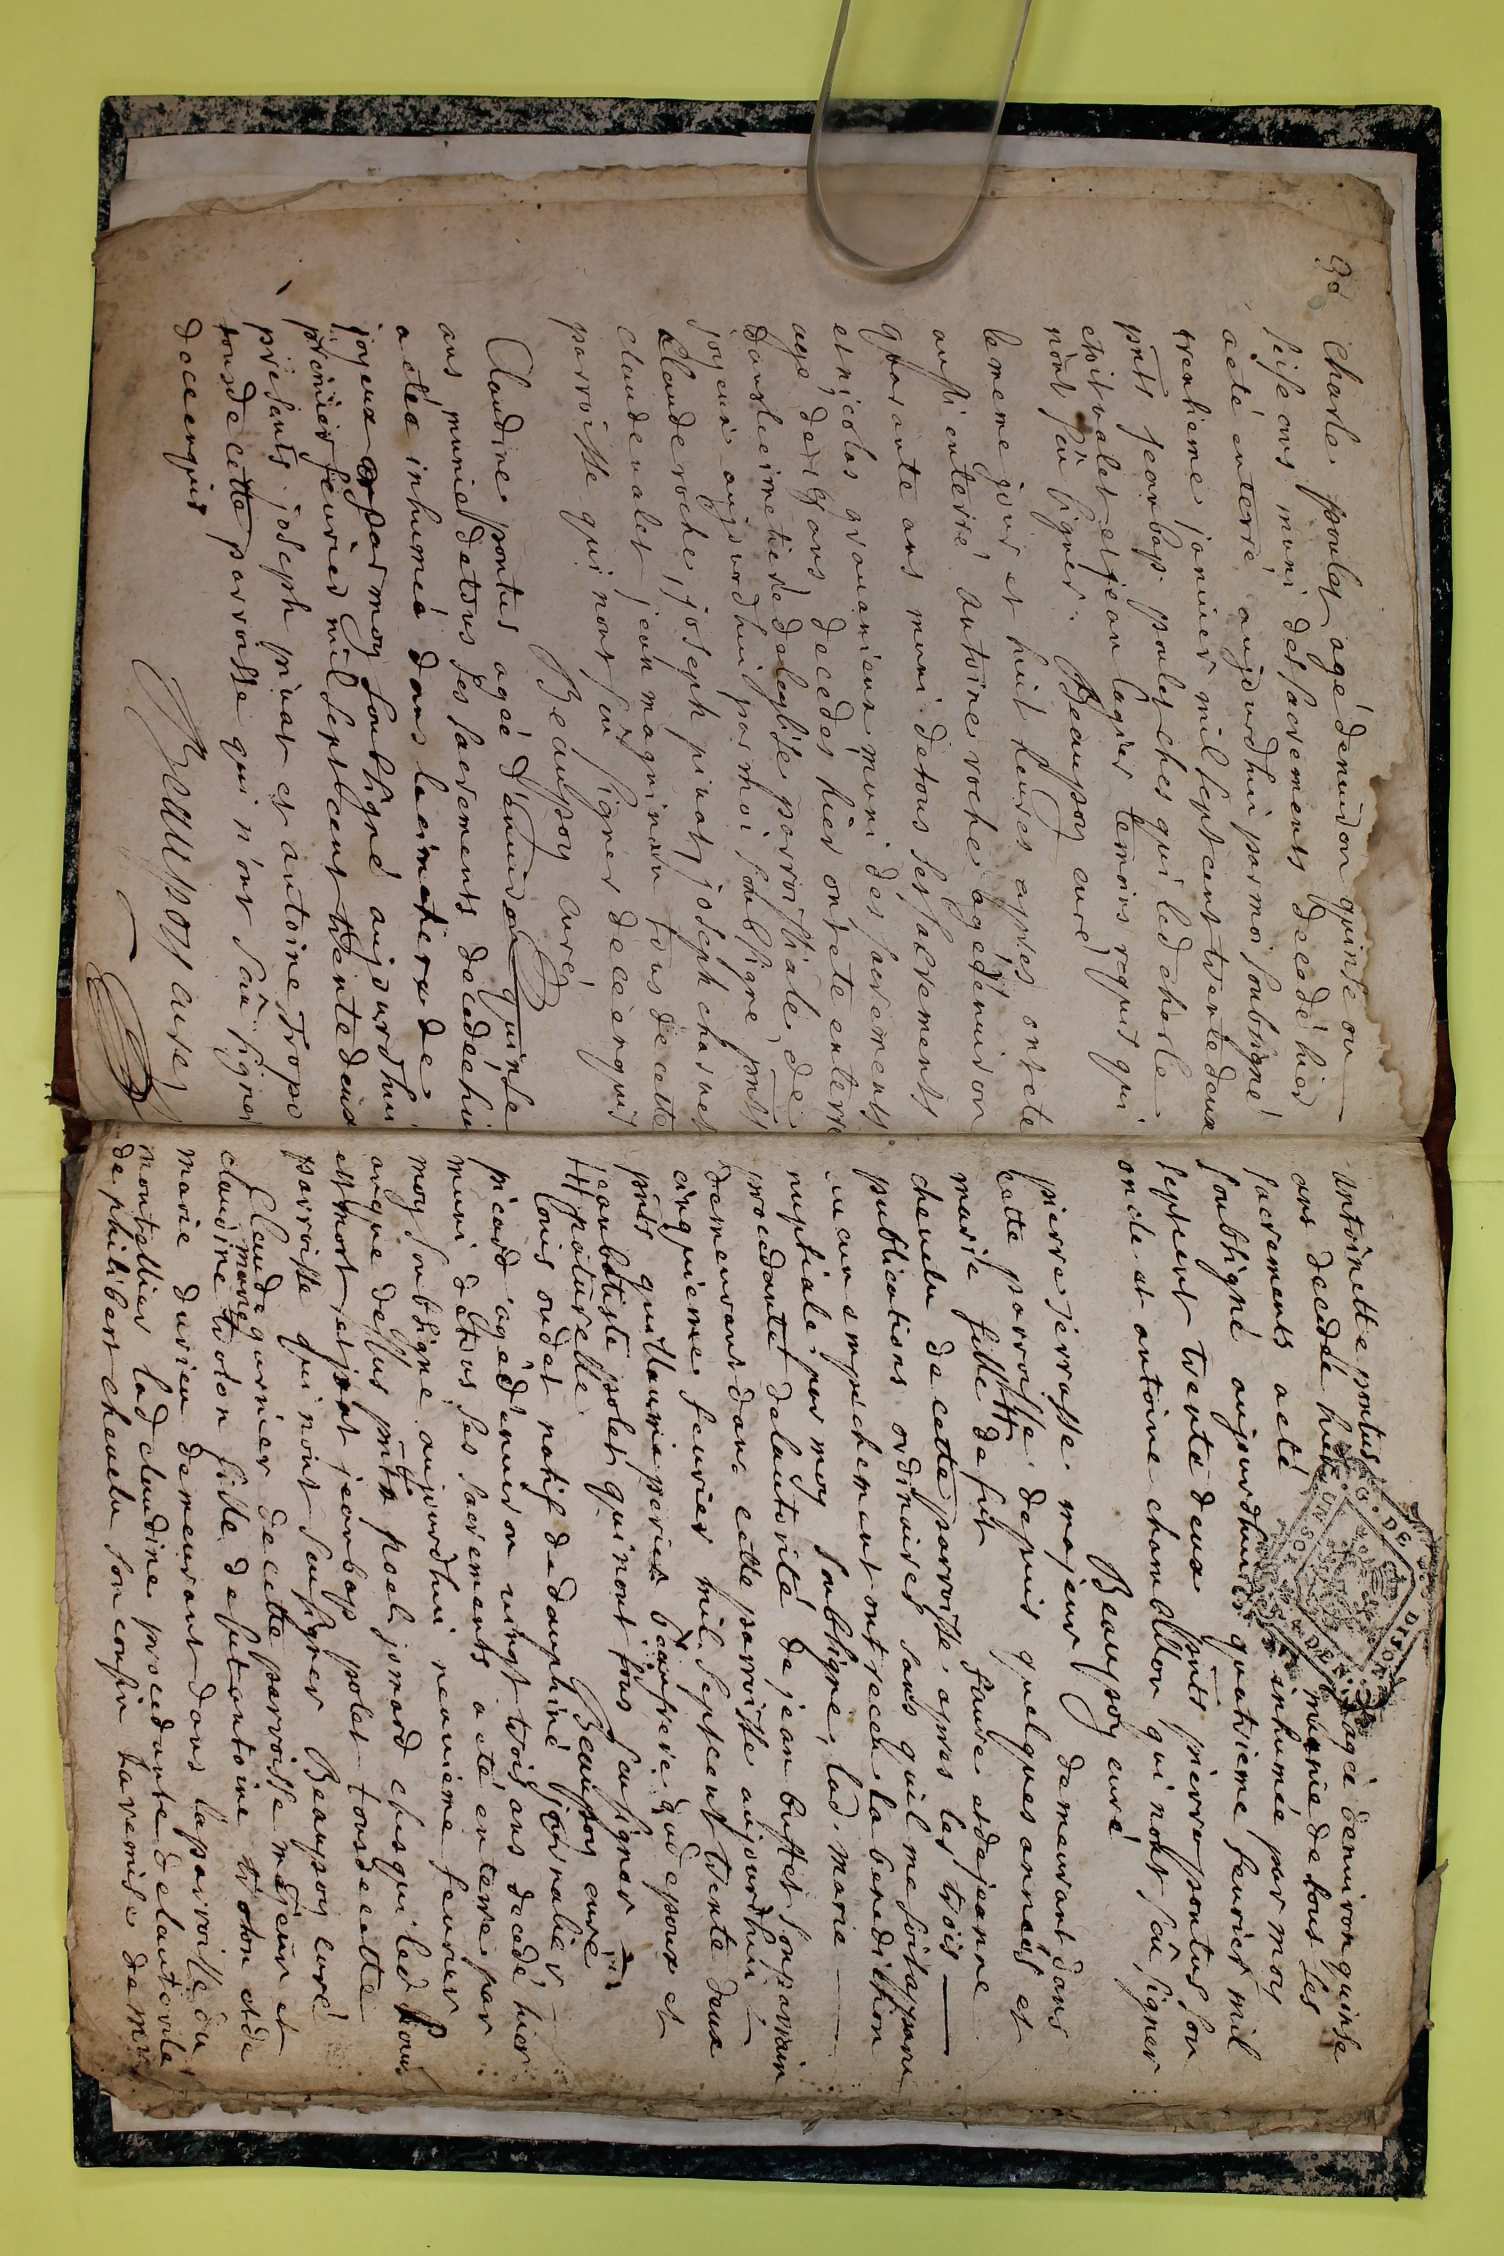 charle poulet agé denuiron quinse ou
seise ans muni des sacrements decedé hier
a eté enterré aujourdhui par moi soubsigné
trentieme januier mil sept cent trente deux
pnts jean bap. poulet ches qui led charle
etoit valet et jean lagier temoins requis qui
nont sçu signer. Beaupoy curé
le meme jour et huit heures apres ont ete
aussi enterré antoine roche agé denuiron
quarante ans muni de tous ses sacrements
et nicolas muni des sacrements
agé de ans decedés hier onte ete enterré
dans le cimetiere de leglise parroissiale de
joyeux aujourdhui par moi soubsigné, pnts
claude roche, joseph piuat, joseph charuet
claude valet, jean maguinau tous de cette
parroisse qui nont sçu signer de ce enquis
Beaupoy curé
Claudine pontus ageé d'enuiron quinse
ans munie de tous ses sacrements decedée hier
a etée inhumeé dans le cimetiere de
joyeux par moy soubsigné aujourdhui
premier feurier mil sept cent trente deux
présents joseph piuat et antoine
tous de cette parroisse qui n'ont sçu signer
de ce enquis
Beaupoy curé
antoinette pontus ageé denuiron quinse
ans decedée hier munie de tous les
sacrements a eté inhumée par moy
soubsigné aujourdhui quatrieme feurier mil
sept cent trente deux pnts pierre pontus son
oncle et antoine chamdellon qui nont sçu signer
Beaupoy curé
pierre majeur demeurant dans
cette parroisse depuis quelques anneés et
marie fille de fut faure et de jeanne
cheuelu de cette parroisse apres les trois
publications ordinaires sans quil me soit apparu
aucun empechement ont receu la benediction
nuptiale par moy soubsigné, lad. marie
procedante de lautorité de jean buffet son parrain
demeurant dans cette parroisse aujourdhui
cinquieme feurier mil sept cent trente deux
pnts guillaume perier beaufrere dud epoux et
jean batiste polet qui nont tous sçu signer
naturelle Beaupoy curé
Louis oudet natif de dauphiné journalier
picard agé denuiron uingt trois ans decedé hier
muni de tous ses sacrements a eté enterré par
moy soubsigné aujourdhui neuuieme feurier
an que dessus pnts jomard ches qui led
est mort et jean bap polet tous de cette
parroisse qui nont sçu signer Beaupoy curé
Claude gurnier de cette parroisse majeur et
marie
claudine trolon fille defut antoine trolon et de
marie durieu demeurant dans la parroisse du
montellier lad claudine procedante de lautorité
de philibert cheuelu son cousin